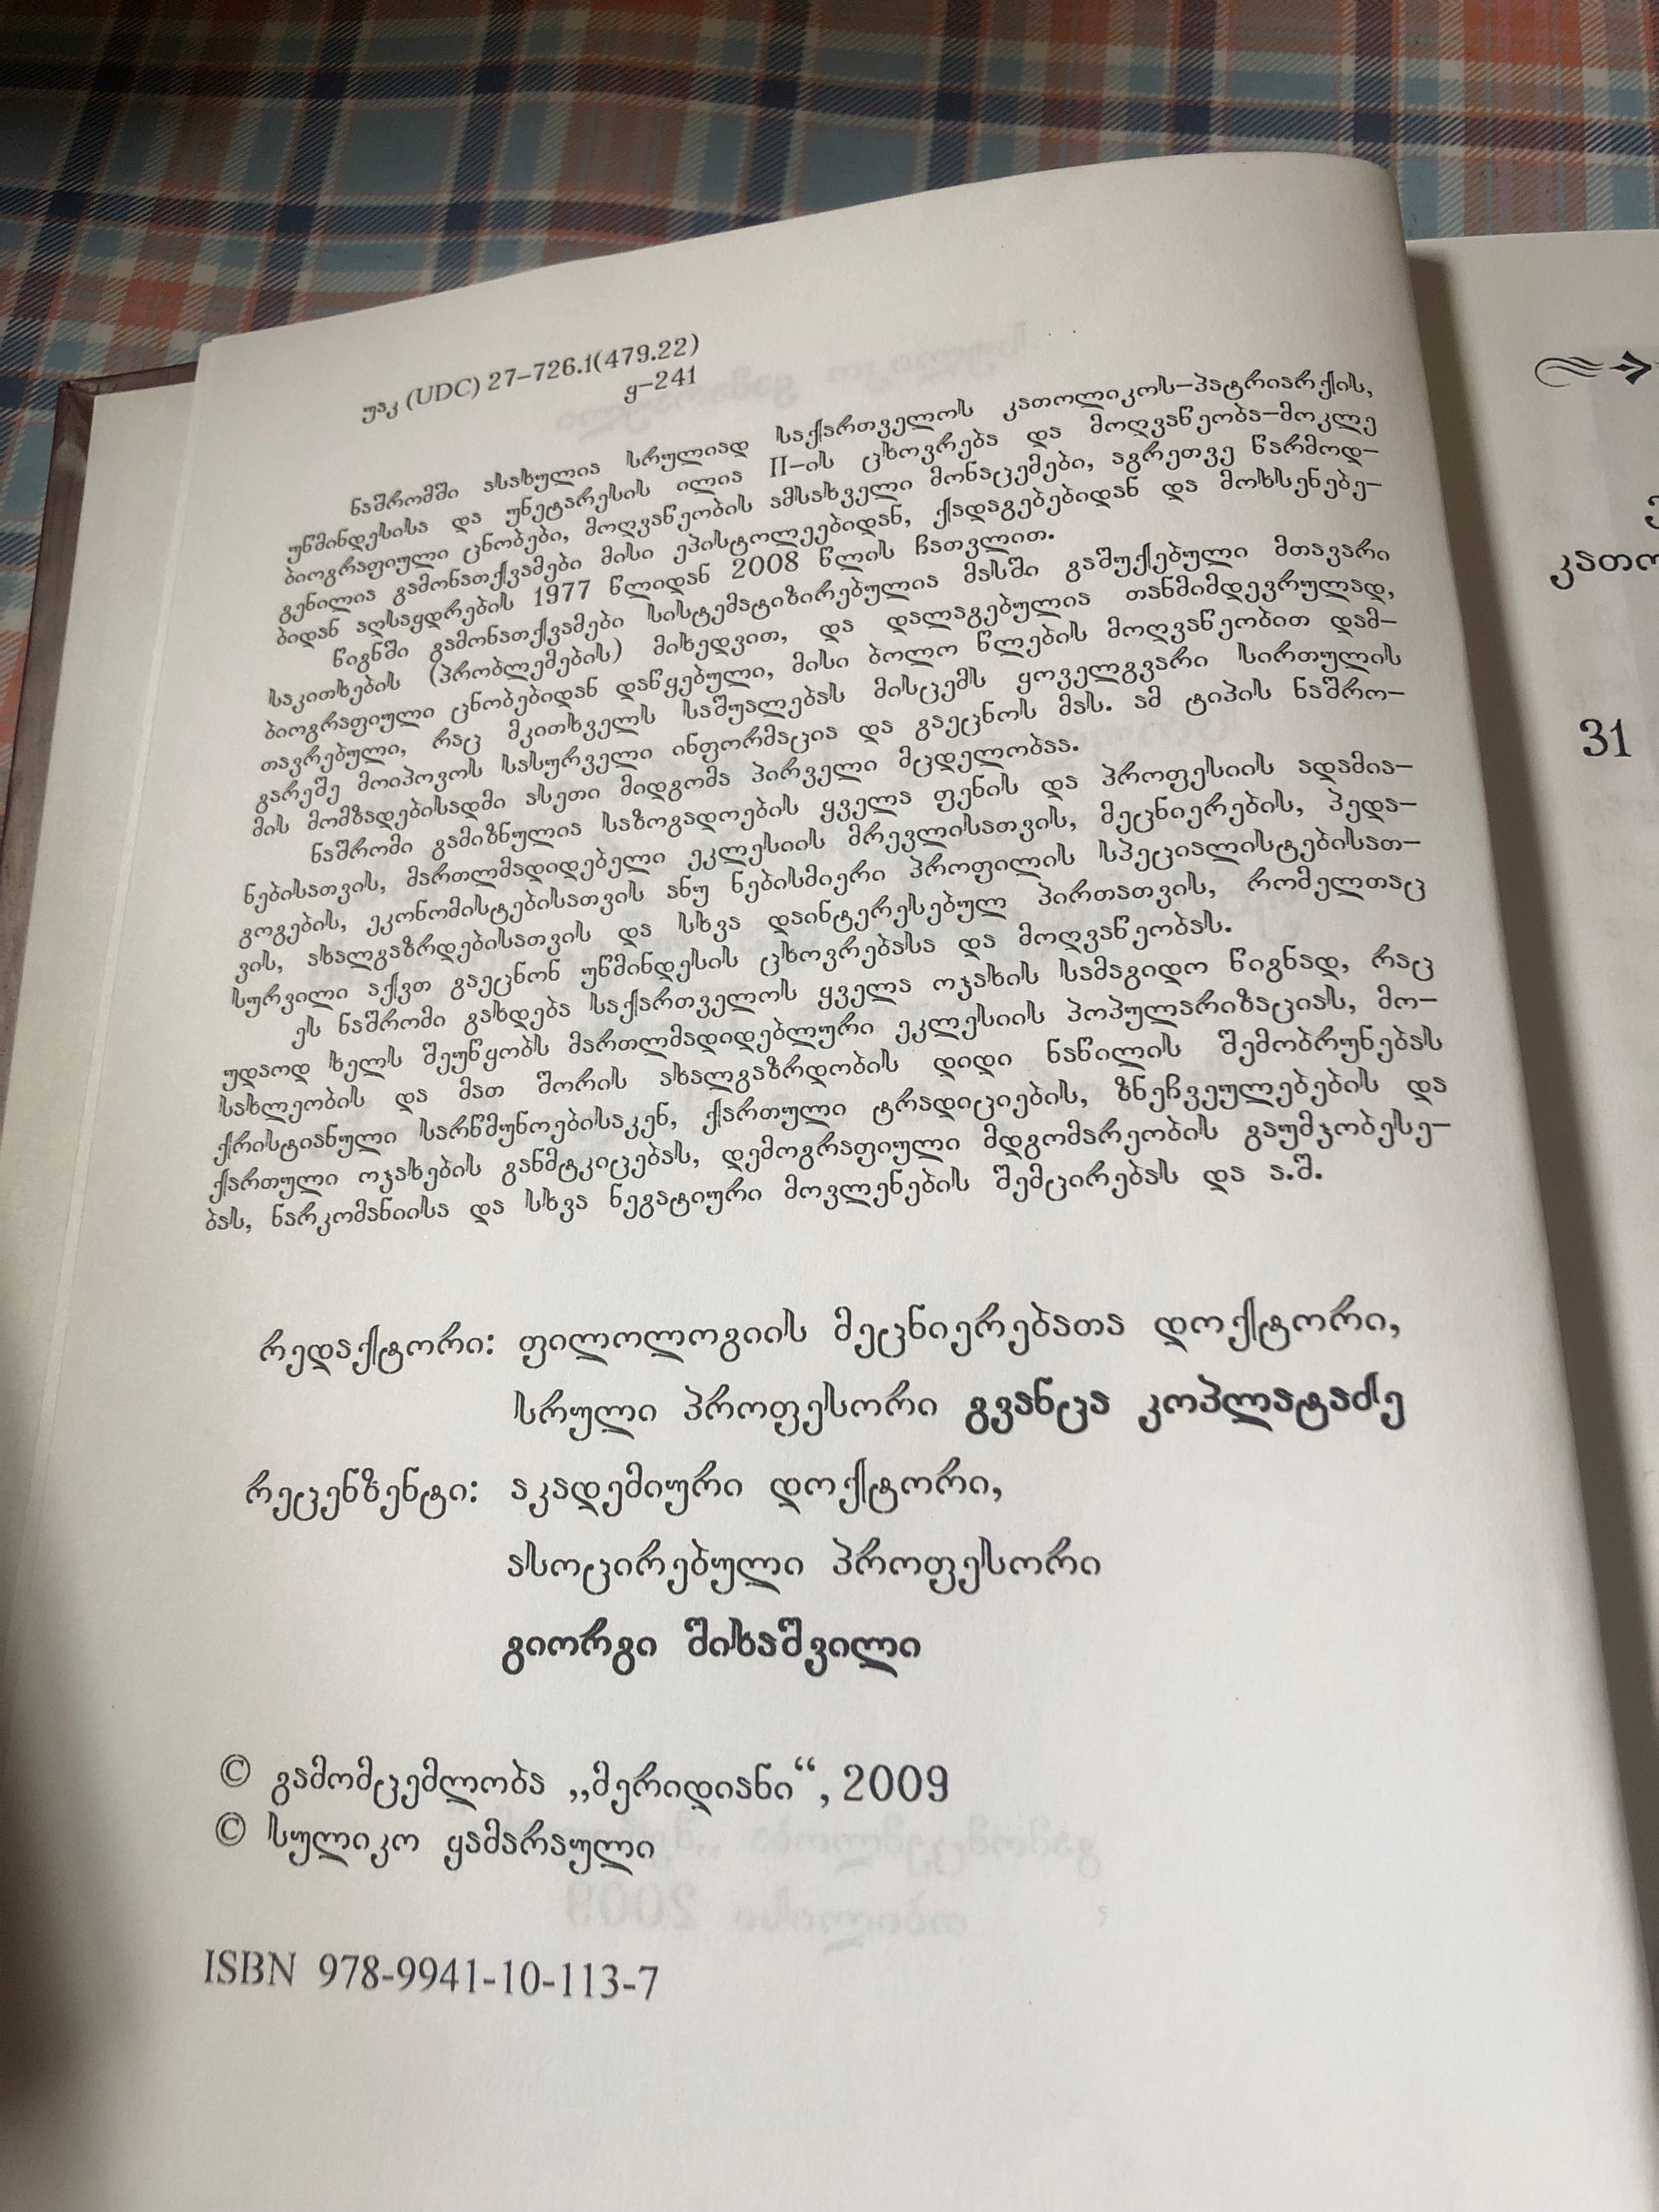 უაკ (UDC) 27–726.1(479.22)
ყ–241
ნაშრომში ასახულია სრულიად საქართველოს კათოლიკოს–პატრიარქის,
უწმინდესისა და უნეტარესის ილია II–ის ცხოვრება და მოღვაწეობა–მოკლე
ბიოგრაფიული ცნობები, მოღვაწეობის ამსახველი მონაცემები, აგრეთვე წარმოდ–
გენილია გამონათქვამები მისი ეპისტოლეებიდან, ქადაგებებიდან და მოხსენებე–
ბიდან აღსაყდრების 1977 წლიდან 2008 წლის ჩათვლით.
წიგნში გამონათქვამები სისტემატიზირებულია მასში გაშუქებული მთავარი
საკითხების (პრობლემების) მიხედვით, და დალაგებულია თანმიმდევრულად,
ბიოგრაფიული ცნობებიდან დაწყებული, მისი ბოლო წლების მოღვაწეობით დამ–
თავრებული, რაც მკითხველს საშუალებას მისცემს ყოველგვარი სირთულის
გარეშე მოიპოვოს სასურველი ინფორმაცია და გაეცნოს მას. ამ ტიპის ნაშრო–
მის მომზადებისადმი ასეთი მიდგომა პირველი მცდელობაა.
ნაშრომი გამიზნულია საზოგადოების ყველა ფენის და პროფესიის ადამია–
ნებისათვის, მართლმადიდებელი ეკლესიის მრევლისათვის, მეცნიერების, პედა–
გოგების, ეკონომისტებისათვის ანუ ნებისმიერი პროფილის სპეციალისტებისათ–
ვის, ახალგაზრდებისათვის და სხვა დაინტერესებულ პირთათვის, რომელთაც
სურვილი აქვთ გაეცნონ უწმინდესის ცხოვრებასა და მოღვაწეობას.
ეს ნაშრომი გახდება საქართველოს ყველა ოჯახის სამაგიდო წიგნად, რაც
უდაოდ ხელს შეუწყობს მართლმადიდებლური ეკლესიის პოპულარიზაციას, მო–
სახლეობის და მათ შორის ახალგაზრდობის დიდი ნაწილის შემობრუნებას
ქრისტიანული სარწმუნოებისაკენ, ქართული ტრადიციების, ზნეჩვეულებების და
ქართული ოჯახების განმტკიცებას, დემოგრაფიული მდგომარეობის გაუმჯობესე–
ბას, ნარკომანიისა და სხვა ნეგატიური მოვლენების შემცირებას და ა.შ.
რედაქტორი: ფილოლოგიის მეცნიერებათა დოქტორი,
სრული პროფესორი გვანცა კოპლატაძე
რეცენზენტი: აკადემიური დოქტორი,
ასოცირებული პროფესორი
გიორგი შიხაშვილი
© გამომცემლობა „მერიდიანი“, 2009
© სულიკო ყამარაული
ISBN 978-9941-10-113-7
კათო
31